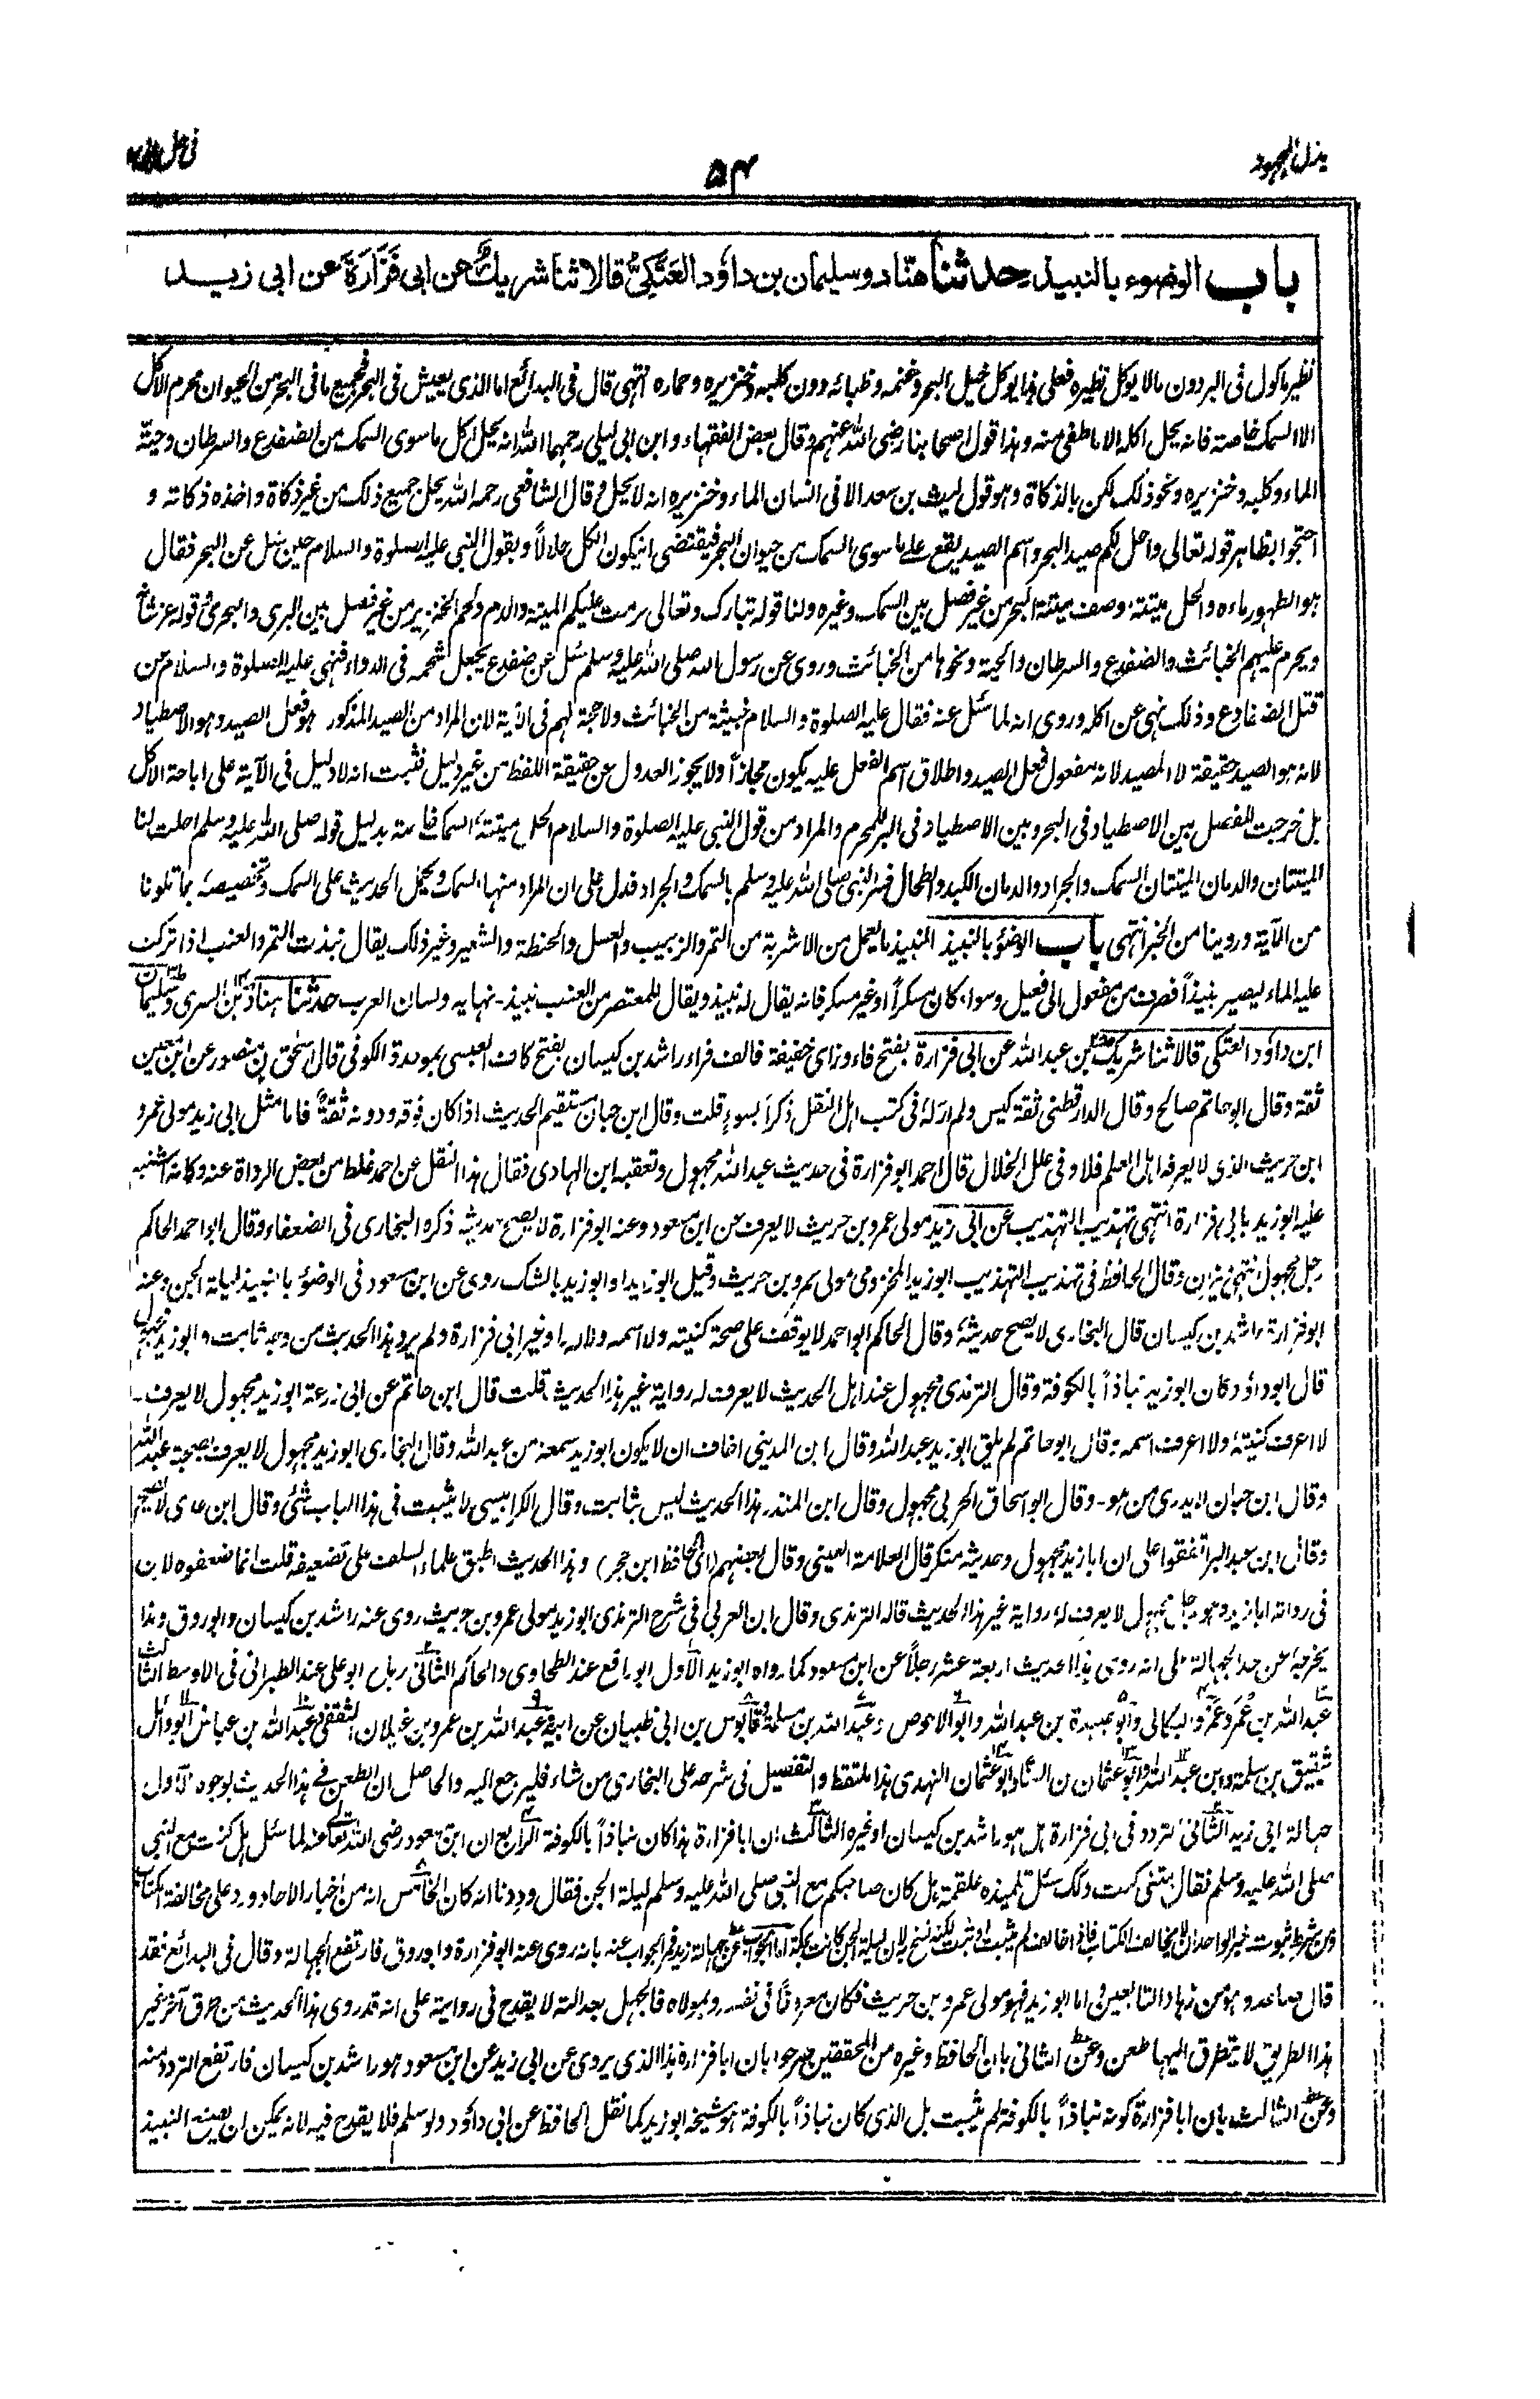 بذل المجهود
۵۴
فی حل
باب الوضوء بالنبيذ حدثنا هناد وسليمان بن داؤد العَتَكِيُّ قالا ثنا شريك عن ابی فَزَارَةَ عن ابی زيد
نظير ماكول فی البر دون مالا يوكل نظيره فعلی هذا يوكل خيل البحر وغنمه وظبائه دون كلبه وخنزيره وحماره انتهی قال فی البدائع اما الذی يعيش فی البحر فجميع ما فی البحر من الحيوان محرم الاكل
الا السمك خاصة فانه يحل اكله الا ما طفی منه وهذا قول اصحابنا رضی الله عنهم وقال بعض الفقهاء وابن ابی ليلی رحمهما الله انه يحل اكل ما سوی السمك من الضفدع والسرطان وحيّة
الماء وكلبه وخنزيره ونحو ذلك لكن بالذكاة وهو قول ليث بن سعد الا فی انسان الماء وخنزيره انه لا يحل وقال الشافعی رحمه الله يحل جميع ذلك من غير ذكاة واخذه ذكاته و
احتجوا بظاهر قوله تعالی واحل لكم صيد البحر واسم الصيد يقع علی ما سوی السمك من حيوان البحر فيقتضی ان يكون الكل حلالاً وبقول النبی عليه الصلوة والسلام حين سئل عن البحر فقال
هو الطهور ماءه والحل ميتته وصف ميتة البحر من غير فصل بين السمك وغيره ولنا قوله تبارك وتعالی حرمت عليكم الميتة والدم ولحم الخنزير من غير فصل بين البری والبحری وقوله عز شانه
ويحرم عليهم الخبائث والضفدع والسرطان والحية ونحوها من الخبائث وروی عن رسول الله صلی الله عليه وسلم سئل عن ضفدع يجعل شحمه فی الدواء فنهی عليه الصلوة والسلام عن
قتل الضفادع وذلك نهی عن اكله وروی انه لما سئل عنه فقال عليه الصلوة والسلام خبيثة من الخبائث ولا حجة لهم فی الآية لان المراد من الصيد المذكور هو فعل الصيد وهو الاصطياد
لانه هو الصيد حقيقة لا المصيد لانه مفعول فعل الصيد واطلاق اسم الفعل عليه يكون مجازاً ولا يجوز العدول عن حقيقة اللفظ من غير دليل فثبت انه لا دليل فی الآية علی اباحة الاكل
بل خرجت للفصل بين الاصطياد فی البحر وبين الاصطياد فی البر للمحرم والمراد من قول النبی عليه الصلوة والسلام الحل ميتته السمك خاصة بدليل قوله صلی الله عليه وسلم احلت لنا
الميتتان والدمان الميتتان السمك والجراد والدمان الكبد والطحال فسر النبی صلی الله عليه وسلم بالسمك والجراد فدل علی ان المراد منها السمك ويحمل الحديث علی السمك وتخصيصه بما تلونا
من الآية وروينا من الخبر انتهی باب الوضؤ بالنبيذ النبيذ ما يعمل من الاشربة من التمر والزبيب والعسل والحنطة والشعير وغير ذلك يقال نبذت التمر والعنب اذا تركت
عليه الماء ليصير نبيذاً فصرف من مفعول الی فعيل وسواء كان مسكراً او غير مسكر فانه يقال له نبيذ ويقال للمعتصر من العنب نبيذ۔ نهايه ولسان العرب حدثنا هناد بن السری وسليمان
ابن داؤد العتكی قالا ثنا شريك بن عبد الله عن ابی فزارة بفتح فاء وزای خفيفة فالف فراء راشد بن كيسان بفتح كاف العبسی بموحدة الكوفی قال اسحق بن منصور عن ابن معين
ثقة وقال ابو حاتم صالح وقال الدارقطنی ثقة كيس ولم ار له فی كتب اهل النقل ذكراً بسوء قلت وقال ابن حبان مستقيم الحديث اذا كان فوقه ودونه ثقة فاما مثل ابی زيد مولی عمرو
ابن حريث الذی لا يعرفه اهل العلم فلا وفی علل الخلال قال احمد ابو فزارة فی حديث عبد الله مجهول وتعقبه ابن الهادی فقال هذا النقل عن احمد غلط من بعض الرواة عنه وكانه اشتبه
عليه ابو زيد بابی فزارة انتهی تهذيب التهذيب عن ابی زيد مولی عمرو بن حريث لا يعرف عن ابن مسعود وعنه ابو فزارة لا يصح حديثه ذكره البخاری فی الضعفاء وقال ابو احمد الحاكم
رجل مجهول انتهی ميزان وقال الحافظ فی تهذيب التهذيب ابو زيد المخزومی مولی عمرو بن حريث وقيل ابو زايد او ابو زيد بالشك روی عن ابن مسعود فی الوضؤ بالنبيذ ليلة الجن وعنه
ابو فزارة راشد بن كيسان قال البخاری لا يصح حديثه وقال الحاكم ابو احمد لا يوقف علی صحة كنيته ولا اسمه ولا له راو غير ابی فزارة ولم يرو هذا الحديث من وجه ثابت وابو زيد مجهول
قال ابو داؤد كان ابو زيد نباذاً بالكوفة وقال الترمذی مجهول عند اهل الحديث لا يعرف له رواية غير هذا الحديث قلت قال ابن حاتم عن ابی زرعة ابو زيد مجهول لا يعرف۔
لا اعرف كنيته ولا اعرف اسمه وقال ابو حاتم لم يلق ابو زيد عبد الله وقال ابن المدينی اخاف ان لا يكون ابو زيد سمعه من عبد الله وقال البخاری ابو زيد مجهول لا يعرف بصحبة عبد الله
وقال ابن حبان لا يدری من هو۔ وقال ابو اسحاق الحربی مجهول وقال ابن المنذر هذا الحديث ليس بثابت وقال الكرابيسی لا يثبت فی هذا الباب شئ وقال ابن عدی لا يصح
وقال ابن عبد البر اتفقوا علی ان ابا زيد مجهول وحديثه منكر قال العلامة العينی وقال بعضهم (ای الحافظ ابن حجر) وهذا الحديث اطبق علماء السلف علی تضعيفه قلت انما ضعفوه لان
فی رواته ابا زيد وهو رجل مجهول لا يعرف له رواية غير هذا الحديث قاله الترمذی وقال ابن العربی فی شرح الترمذی ابو زيد مولی عمرو بن حريث روی عنه راشد بن كيسان وابو روق وهذا
يخرجه عن حد الجهالة علی انه روی هذا الحديث اربعة عشر رجلاً عن ابن مسعود كما رواه ابو زيد الاول ابو رافع عند الطحاوی والحاكم الثانی رباح ابو علی عند الطبرانی فی الاوسط الثالث
عبد الله بن عُمَر وعَمرو البكالی وابو عبيدة بن عبد الله وابو الاحوص وعبد الله بن مسلمة وقابوس بن ابی ظبيان عن ابيه وعبد الله بن عمرو بن غيلان الثقفی وعبد الله بن عباس وابو وائل
شقيق بن سلمة وابن عبد الله وابو عثمان بن وابو عثمان النهدی هذا ملتقط والتفصيل فی شرحه علی البخاری من شاء فليرجع اليه والحاصل ان الطعن فی هذا الحديث بوجوه الاول
جهالة ابی زيد الثانی التردد فی ابی فزارة هل هو راشد بن كيسان او غيره الثالث ان ابا فزارة هذا كان نباذاً بالكوفة الرابع ان ابن مسعود رضی الله تعالی عنه لما سئل هل كنت مع النبی
صلی الله عليه وسلم فقال ليتنی كنت وكذلك سئل تلميذه علقمة هل كان صاحبكم مع النبی صلی الله عليه وسلم ليلة الجن فقال وددنا انه كان الخامس انه من اخبار الاحاد ورد علی مخالفة الكتاب
ومن شرط ثبوت خبر الواحد ان لا يخالف الكتاب فاذا خالف لم يثبت او ثبت لكنه نسخ به لان ليلة الجن كانت بمكة اما الجواب عن جهالة زيد فمر الجواب عنه بانه روی عنه ابو فزارة وابو روق فارتفع الجهالة وقال فی البدائع فقد
قال صاعد وهو من زهاد التابعين اما ابو زيد فهو مولی عمرو بن حريث فكان معروفاً فی نفسه وبمولاه فالجهل بعدالته لا يقدح فی روايته علی انه قد روی هذا الحديث من طرق آخر غير
هذا الطريق لا يتطرق اليها طعن وعن الثانی بان الحافظ وغيره من المحققين صرحوا بان ابا فزارة هذا الذی يروی عن ابی زيد عن ابن مسعود هو راشد بن كيسان فارتفع التردد منه
وعن الثالث بان ابا فزارة كونه نباذاً بالكوفة لم يثبت بل الذی كان نباذاً بالكوفة هو شيخه ابو زيد كما نقل الحافظ عن ابی داؤد ولو سلم فلا يقدح فيه لانه يمكن ان يصنع النبيذ